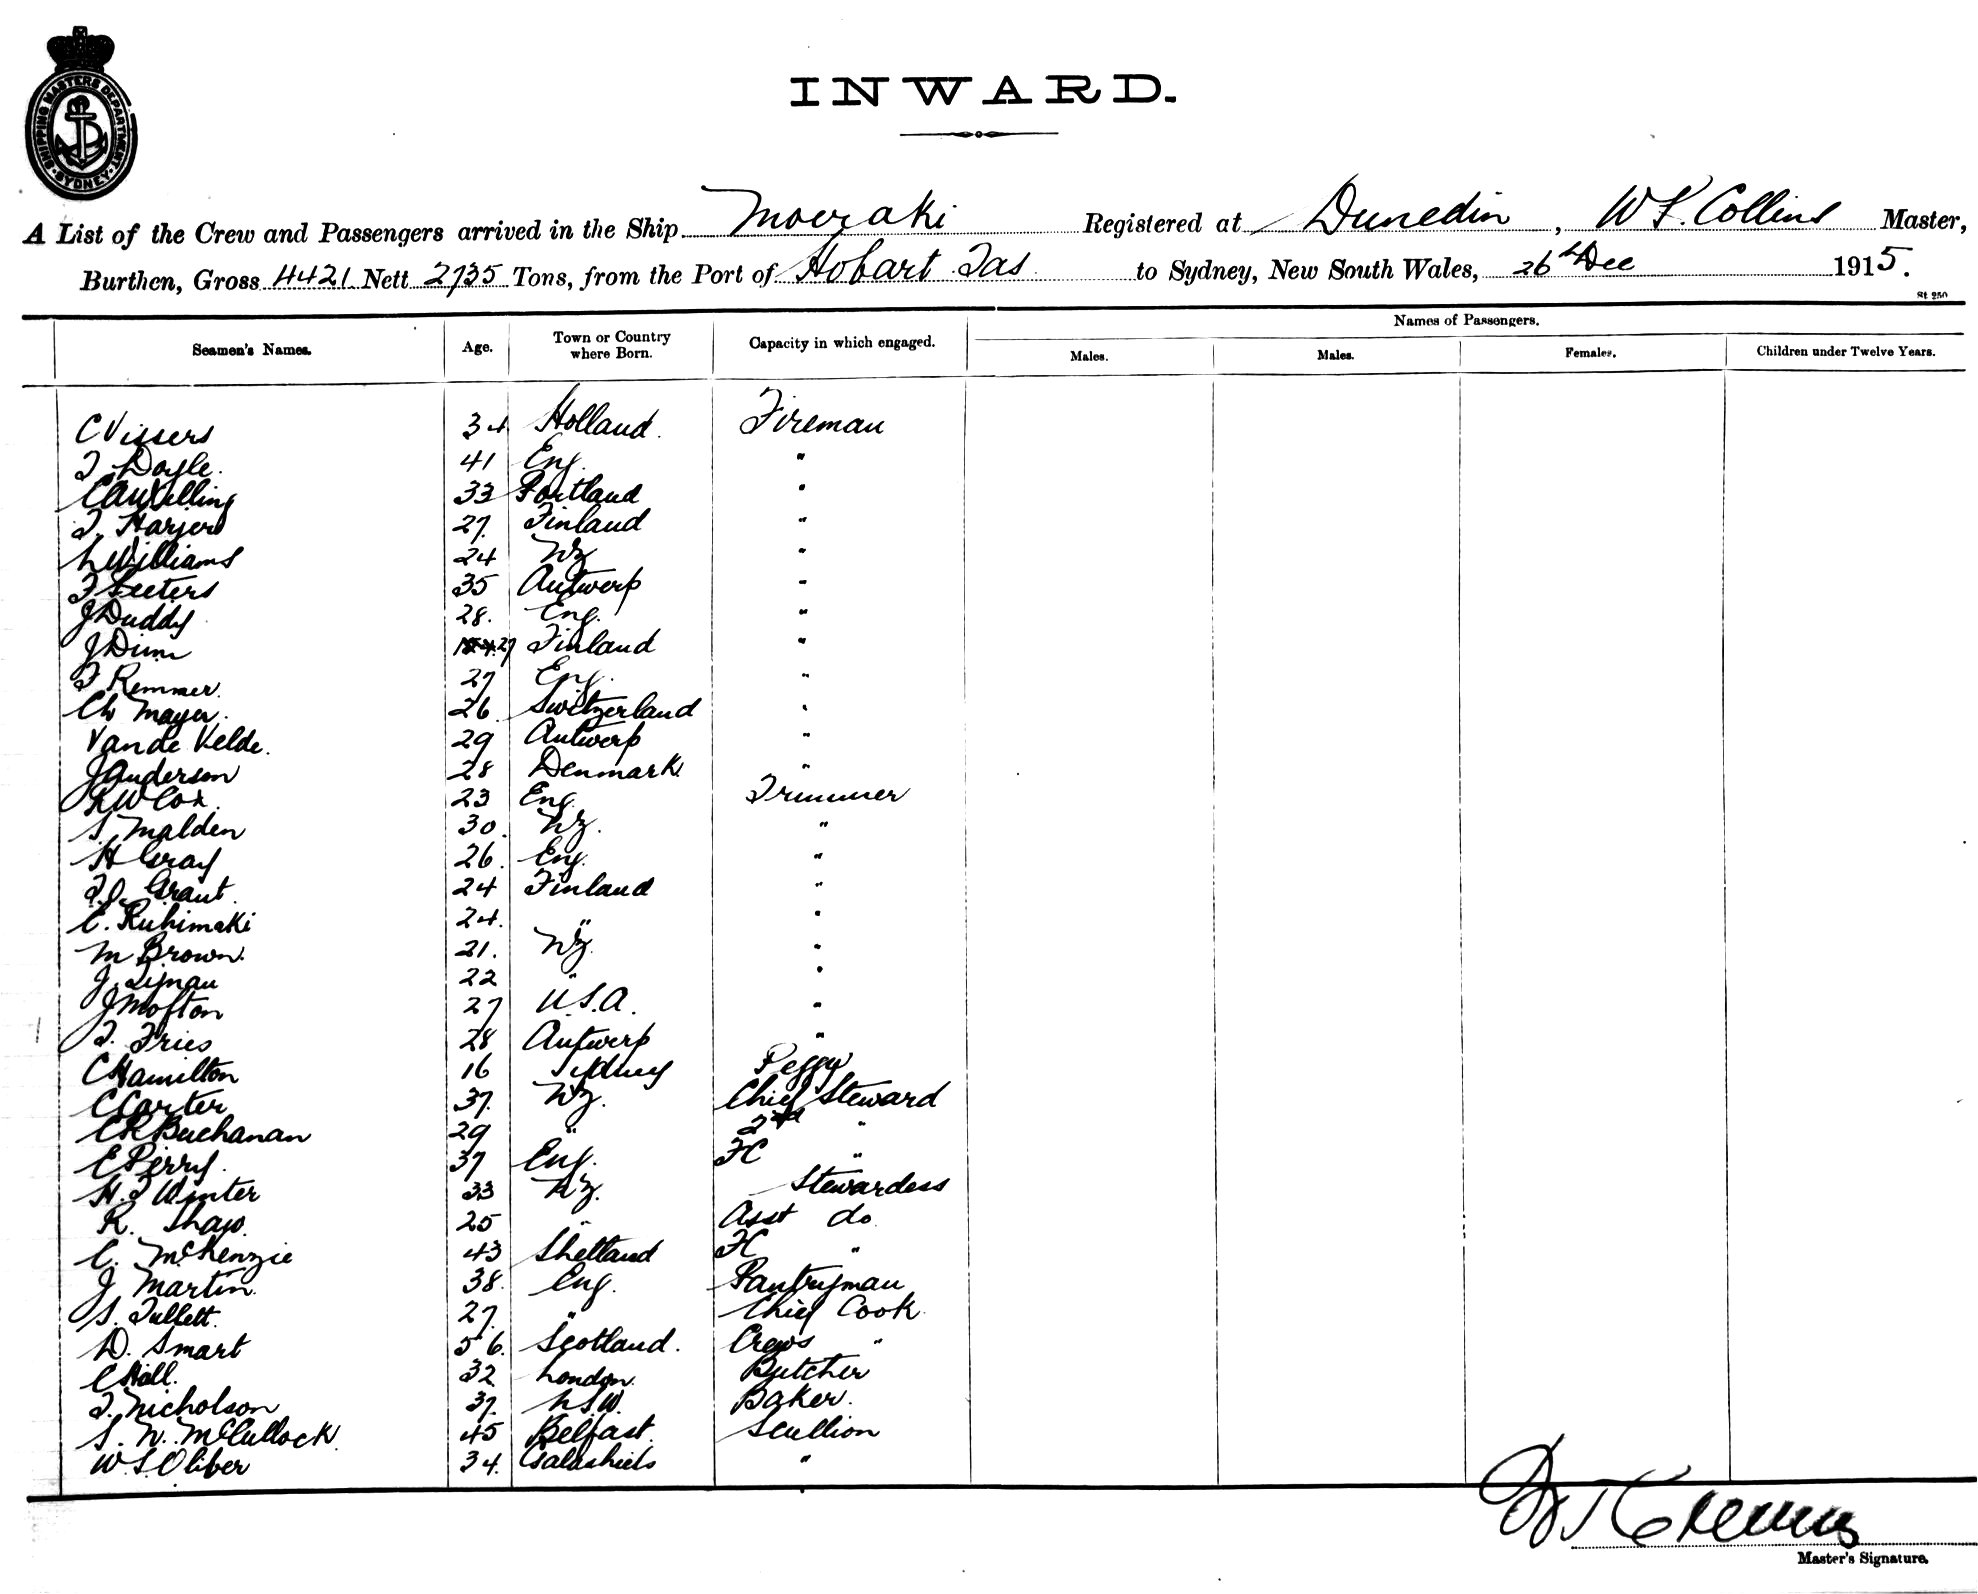 SHIPPING MASTERS DEPARTMENT SYDNEY
INWARD.
A List of the Crew and Passengers arrived in the Ship Moeraki Registered at Dunedin, Collins Master,
Burthen, Gross 4421 Nett 2735 Tons, from the Port of Hobart Tas to Sydney, New South Wales, 26th Dec 1915.
St. 250
Seamen's Names. Age. Town or Country where Born. Capacity in which engaged. Names of Passengers.
Males. Males. Females. Children under Twelve Years.
C Vissers 34 Holland. Fireman
T. Doyle. 41 Eng. "
33 Portland "
27. Finland "
L Williams 24 NZ "
T Peeters 35 Antwerp "
J Duddy 28. Eng. "
J Dunn 27 Finland "
T Remmer. 27 Eng. "
Ch Mayer. 26 Switzerland "
Van de Velde. 29 Antwerp "
J Anderson 28 Denmark "
R W Cox. 23 Eng. Trimmer
S. Malden 30. NZ. "
H Gray 26. Eng. "
T.J. Grant. 24 Finland "
E. Ruhimaki 24. " "
M Brown. 21. NZ. "
J. 22 " "
J Mofton 27 U.S.A. "
T. Fries 28 Antwerp "
C Hamilton 16 Sydney Peggy
C Carter 37. NZ. Chief Steward
C R Buchanan 29 " 2nd "
E Perry. 37 Eng. FC "
H. T Winter 33 NZ. Stewardess
R. Shaw. 25 " Asst do
C. McKenzie 43 Shetland FC "
J Martin. 38. Eng. Pantryman
S. Tullett. 27. " Chief Cook.
D. Smart 56. Scotland. Crews "
C Hall. 32 London. Butcher
T. Nicholson 37. NSW. Baker.
S. N. McCullock 45 Belfast. Scullion
W. S. Oliber 34. Galashiels "
Master's Signature.